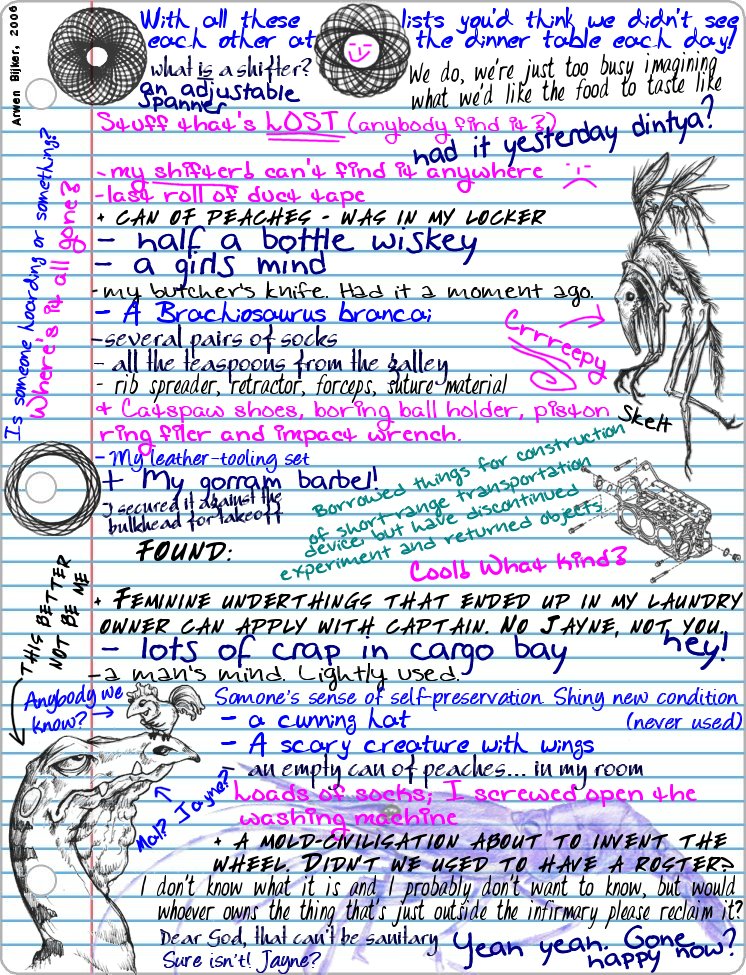 Arwen Bijker, 2006
With all these lists you'd think we didn't see
each other at the dinner table each day!
what is a shifter?
an adjustable
spanner
We do, we're just too busy imagining
what we'd like the food to taste like
Stuff that's LOST (anybody find it?)
had it yesterday dintya?
-my shifter! can't find it anywhere
-last roll of duct tape
+ CAN OF PEACHES - WAS IN MY LOCKER
- half a bottle wiskey
- a girls mind
-my butcher's knife. Had it a moment ago.
- A Brachiosaurus brancai
-several pairs of socks
- all the teaspoons from the galley
- rib spreader, retractor, forceps, suture material
+ Catspaw shoes, boring ball holder, piston
ring filer and impact wrench.
Crrreepy
Skelt
Is someone hoarding or something?
Where's it all gone?
- My leather-tooling set
+ My gorram barbel!
I secured it against the
bulkhead for takeoff
Borrowed things for construction
of short-range transportation
device, but have discontinued
experiment and returned objects
Cool! What kind?
FOUND:
+ FEMININE UNDERTHINGS THAT ENDED UP IN MY LAUNDRY
OWNER CAN APPLY WITH CAPTAIN. NO JAYNE, NOT YOU.
THIS BETTER
NOT BE ME
- lots of crap in cargo bay
hey!
-a man's mind. Lightly used.
Anybody we
know?
Somone's sense of self-preservation. Shing new condition
(never used)
- a cunning hat
- A scary creature with wings
- an empty can of peaches... in my room
Mal? Jayne?
Loads of socks; I screwed open the
washing machine
+ A MOLD-CIVILISATION ABOUT TO INVENT THE
WHEEL. DIDN'T WE USED TO HAVE A ROSTER?
I don't know what it is and I probably don't want to know, but would
whoever owns the thing that's just outside the infirmary please reclaim it?
Dear God, that can't be sanitary
Sure isn't! Jayne?
Yeah yeah. Gone.
happy now?